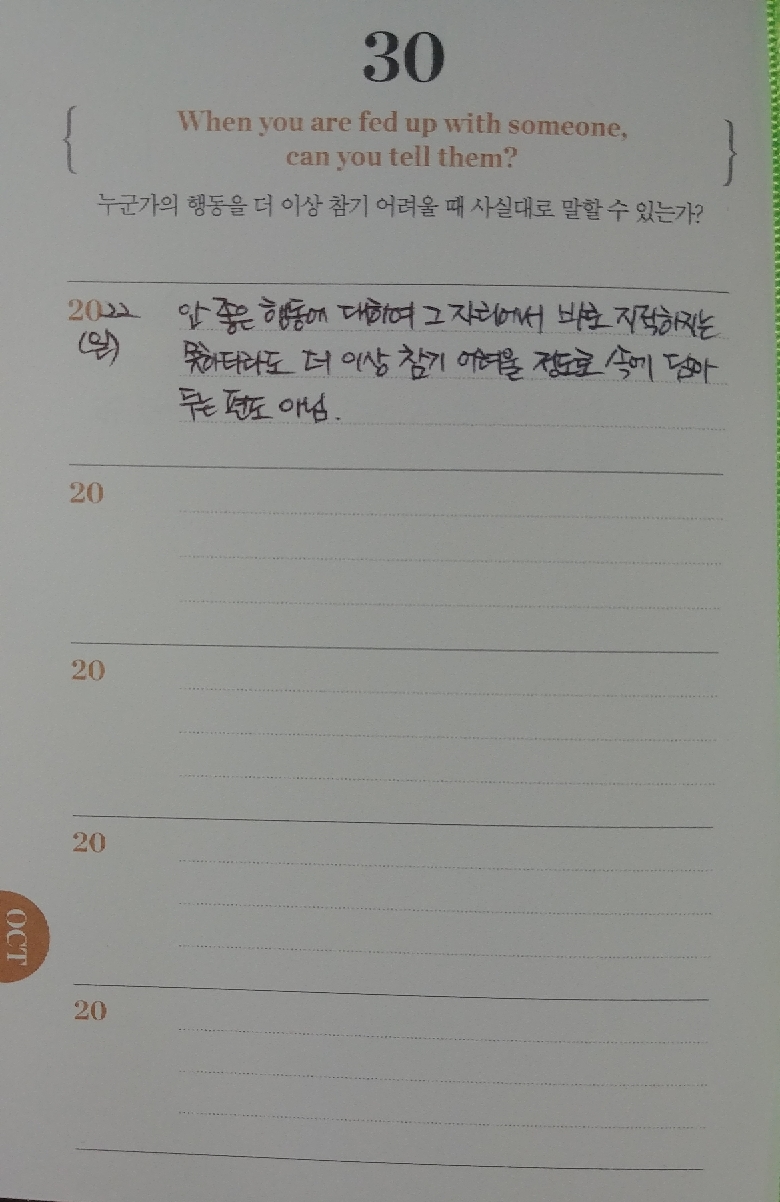 30
When you are fed up with someone,
can you tell them?
누군가의 행동을 더 이상 참기 어려울 때 사실대로 말할 수 있는가?
2022 안 좋은 행동에 대하여 그 자리에서 바로 지적하지는
(일) 못하더라도 더 이상 참기 어려울 정도로 속에 담아
두는 편도 아님.
20
20
20
OCT
20